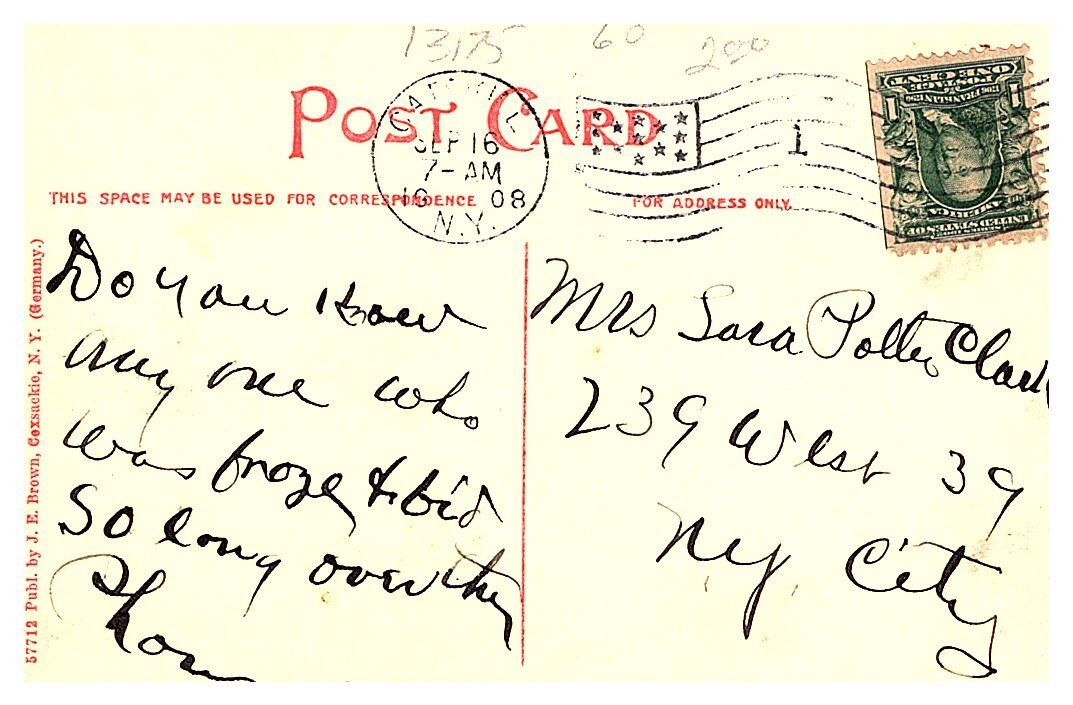 13175 60 200
POST CARD
CATSKILL
SEP 16
7-AM
08
N.Y.
1
ONE CENT
1 1
THIS SPACE MAY BE USED FOR CORRESPONDENCE
FOR ADDRESS ONLY.
57712 Publ. by J. E. Brown, Coxsackie, N. Y. (Germany.)
Do you know
any one who
was froze & bid
So long over the
Mrs Sara Potter Clark
239 West 39
NY. City